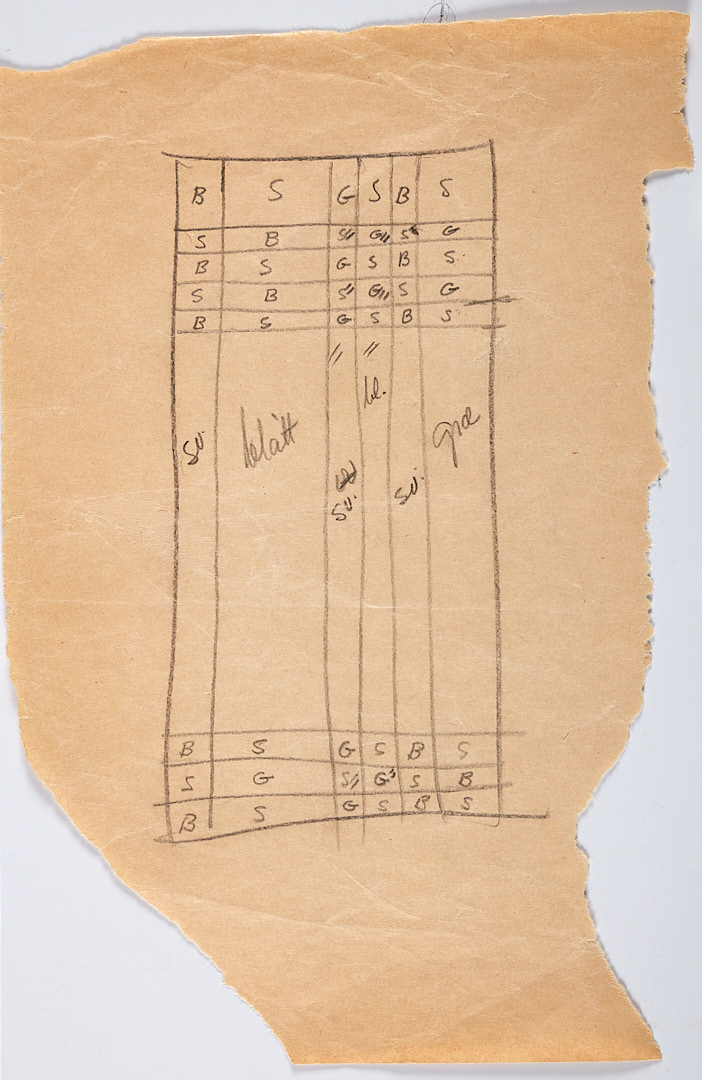 B S G S B S
S B S" G" S G
B S G S B S
S B S" G" S G
B S G S B S
" "
bl.
Sv. blått grå
Sv. Sv.
B S G S B S
S G S" G" S B
B S G S B S